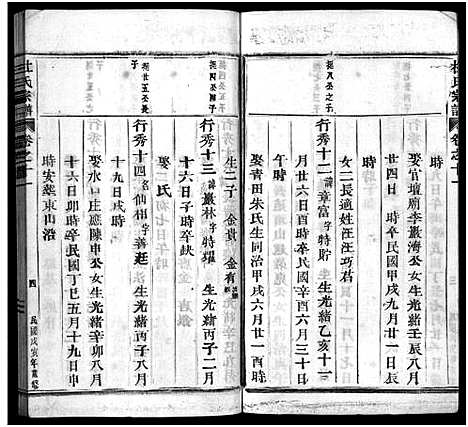 杜氏宗譜 卷之十一
三
娶官塘廟李嚴濤公女生光緒壬辰八月
廿四日 時卒民國甲戌九月廿一日辰
時
女二長適姓汪汪巧君
挺八公之子
行秀十二 諱華富 字特貯 生光緒乙亥十一
月廿六日酉時卒民國辛酉六月三十日
娶青田朱氏生同治甲戌六月廿一丑時
生二子 金貴 金有
挺四公四子
行秀十三 諱嚴林 字特耀 生光緒丙子二月
十六日子時卒缺
娶 氏
挺廿五公長子
行秀十四 名仙相 字善廷 生光緒丙子八月
十九日戌時
娶水口庄應陳申公女生光緒辛卯八月
十六日卯時卒民國丁巳五月十九日申
時安葬東山沿
杜氏宗譜 卷之十一
四
民國戊寅年重修